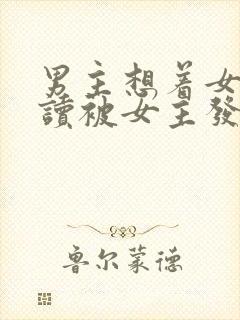 男主想着女
讀被女主發
鲁尔蒙德